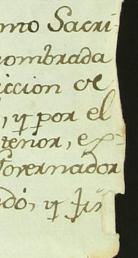 mo Sacri-
ombrada
iccion de
, y por el
tenor, e
Governador
dó, y